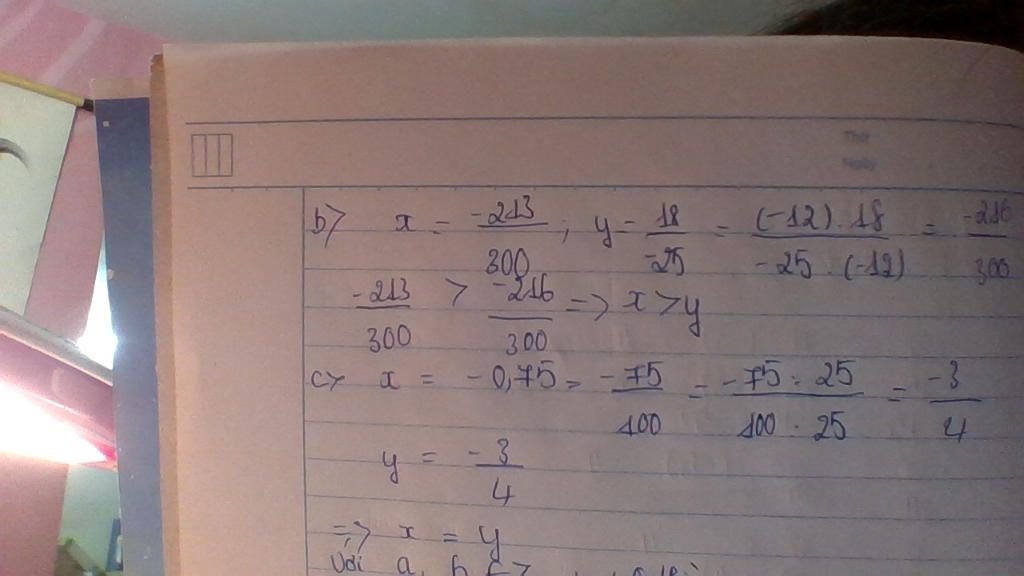 Thứ
Ngày
b> x = -213/300 ; y = 18/-25 = (-12).18/-25.(-12) = -216/300
-213/300 > -216/300 => x > y
c> x = -0,75 = -75/100 = -75:25/100:25 = -3/4
y = -3/4
=> x = y
Với a, b,